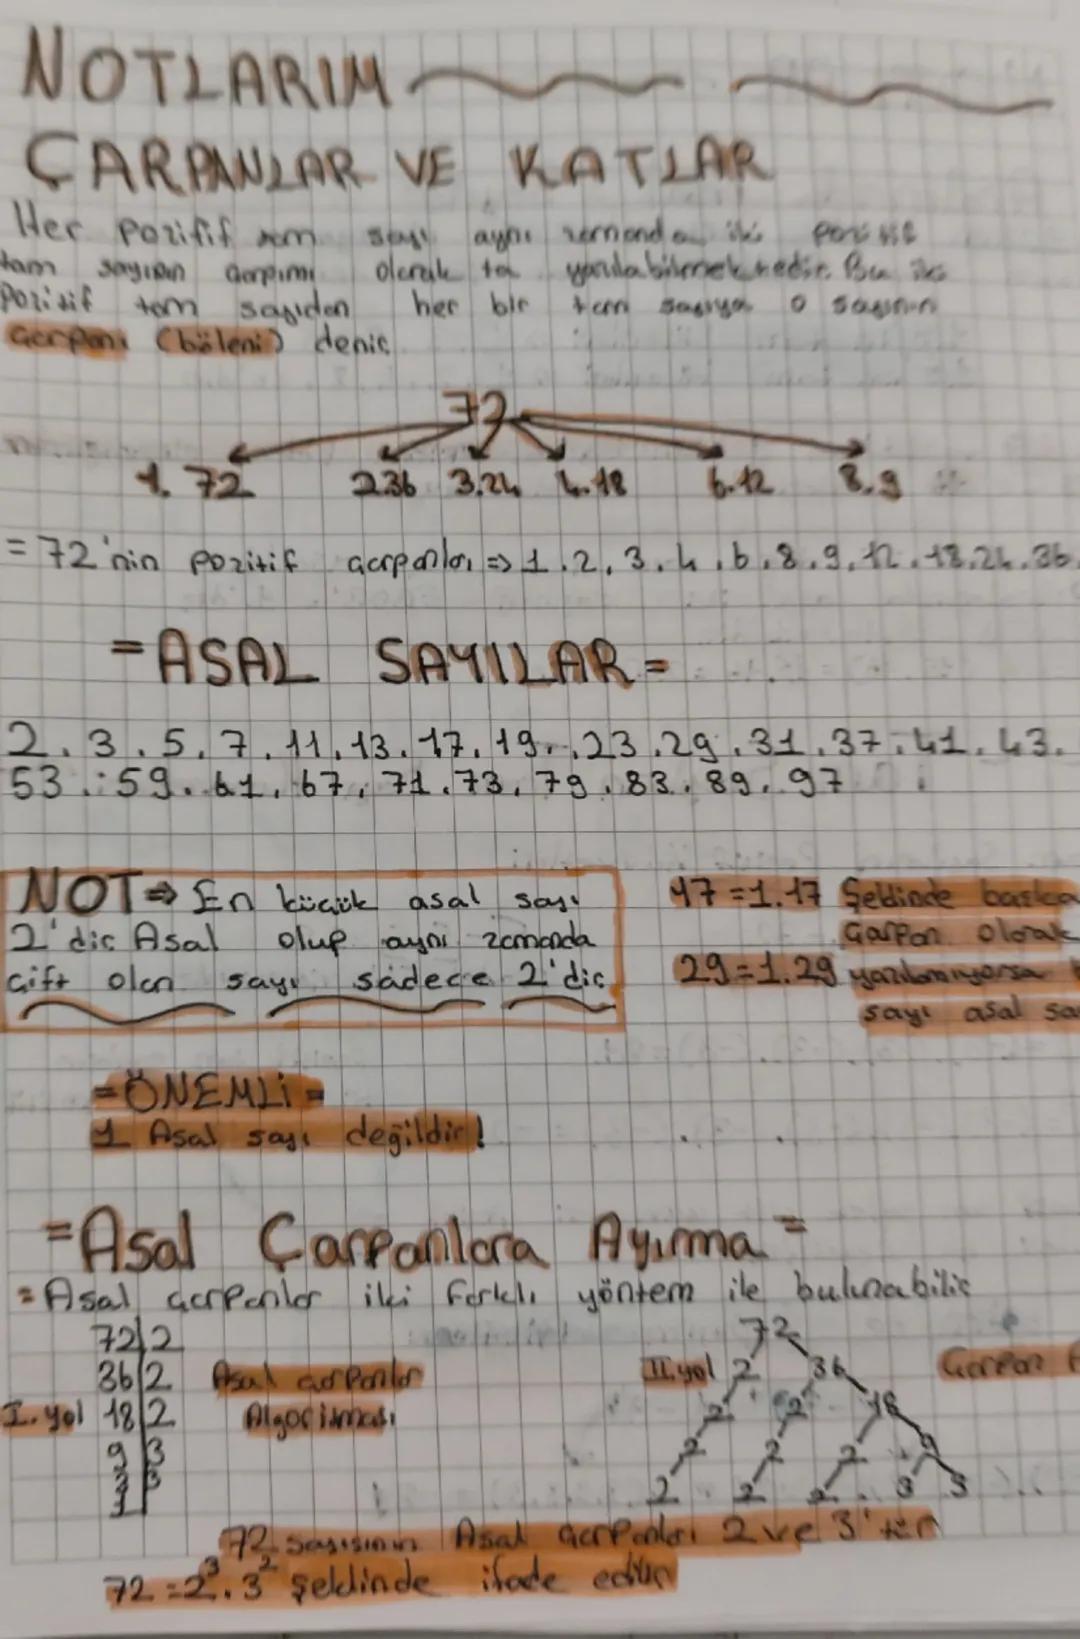 NOTLARIM
ÇARPANLAR VE KATLAR
Her Pozitif tam sayı aynı zamanda iki pozitif
tam sayının çarpımı olarak ta yazılabilmektedir. Bu iki
Pozitif tam sayıdan her bir tam sayıya o sayının
Çarpanı (böleni) denir
72
1.72 2.36 3.24 4.18 6.12 8.9
=72'nin pozitif çarpanları => 1.2,3.4.6.8.9.12.18.24.36
=ASAL SAYILAR=
2.3.5.7.11.13.17.19.23.29.31.37.41.43.
53.59.61.67.71.73.79.83.89.97
NOT⇒ En küçük asal sayı
2'dir Asal olup aynı zamanda
çift olan sayı sadece 2'dir
17=1.17 Şeklinde başka
Çarpan olarak
29=1.29 yazılamıyorsa
sayı asal sa
=ÖNEMLİ=
1 Asal sayı değildir!
=Asal Çarpanlara Ayırma=
=Asal çarpanlar iki farklı yöntem ile bulunabilir
72|2
36|2 Asal çarpanlar
I.yol 18|2 Algoritması
9|3
3|3
1
72
II.yol 2 36 Çarpan
2 2 18
2 2 2 9
2 2 2 3 3
72 sayısının Asal çarpanları 2 ve 3'tür
72=2³.3² şeklinde ifade edilir